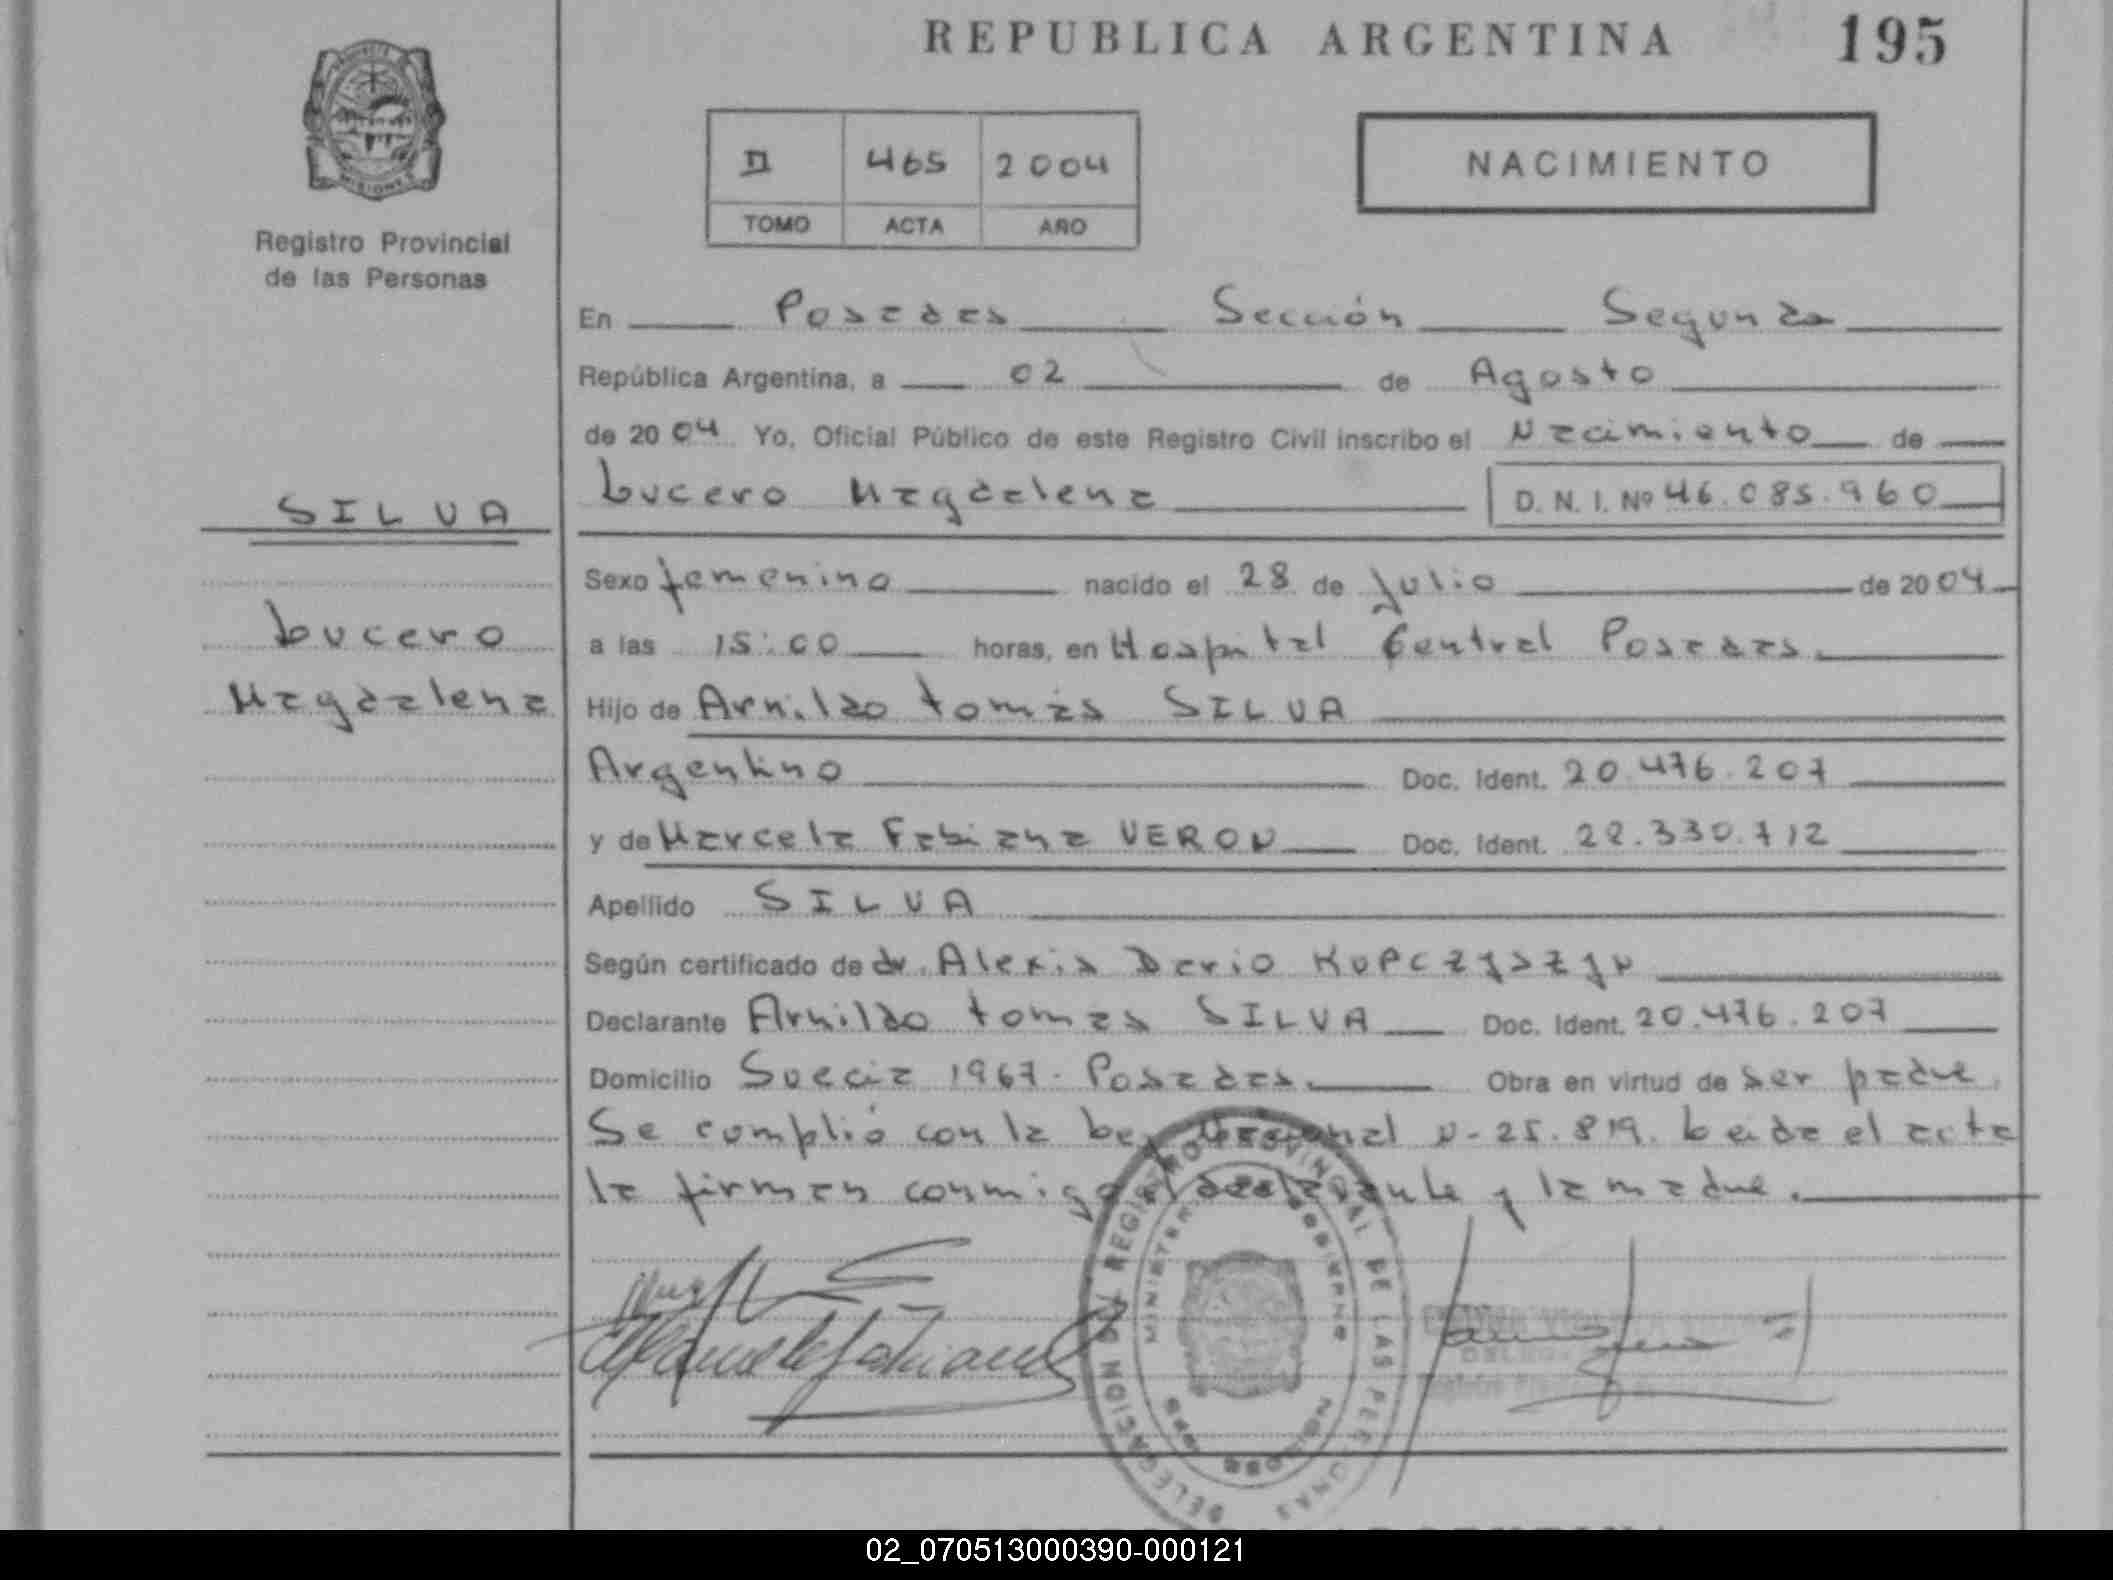 REPUBLICA ARGENTINA 195
MISIONES
Registro Provincial
de las Personas
II 465 2004
TOMO ACTA AÑO
NACIMIENTO
En Posadas Sección Segunda
República Argentina, a 02 de Agosto
de 2004 Yo, Oficial Público de este Registro Civil inscribo el Nacimiento de
Lucero Magdalena D. N. I. Nº 46.085.960
SILVA
Lucero
Magdalena
Sexo femenino nacido el 28 de Julio de 2004
a las 15:00 horas, en Hospital Central Posadas.
Hijo de Arnildo tomás SILVA
Argentino Doc. Ident. 20.476.207
y de Marcela Fabiana VERON Doc. Ident. 22.330.712
Apellido SILVA
Según certificado de dr. Alexis Dario KUPCZYSZYN
Declarante Arnildo tomas SILVA Doc. Ident. 20.476.207
Domicilio Suecia 1967. Posadas. Obra en virtud de ser padre.
Se complió con la Ley Nacional N-25.819. Leida el acta
la firman conmigo el declarante y la madre.
REGISTRO PROVINCIAL DE LAS PERSONAS
MINISTERIO DE GOBIERNO
DELEGACION
MISIONES
02_070513000390-000121